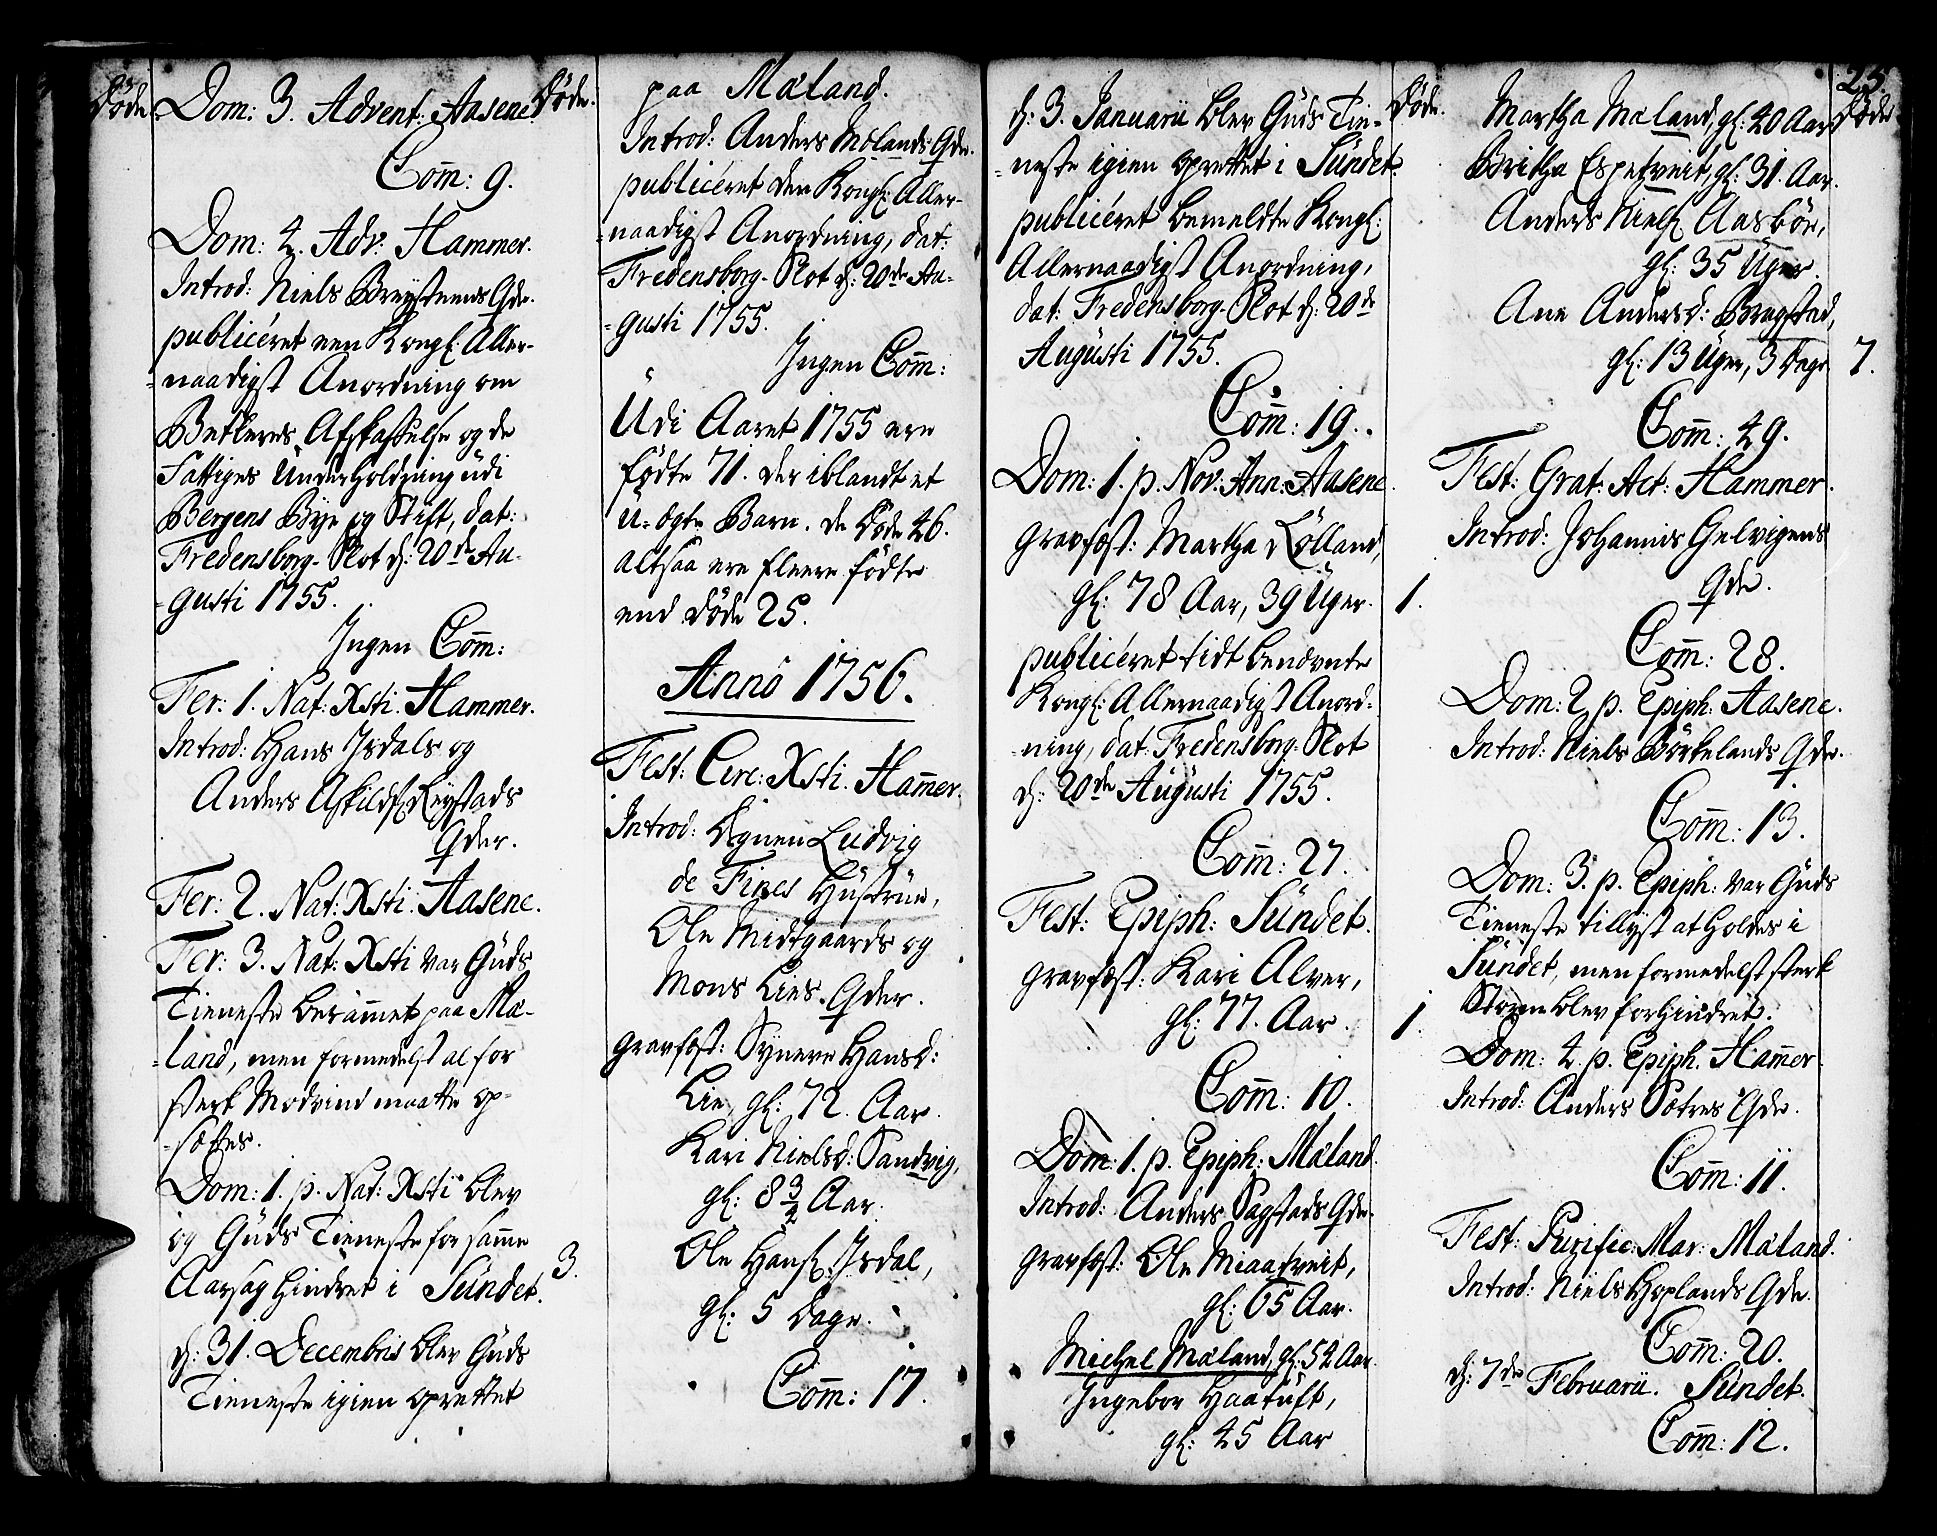 25.
Døde
Dom: 3. Advent: Aasene.
Com̄: 9.
Dom: 4. Adv: Hammer.
Introd: Niels Breysteens Qde.
publicéret een Kongl: Aller-
-naadigst Anordning om
Betleres Afskaffelse og de
Fattiges Underholdning udi
Bergens Bye og Stift, dat:
Fredensborg-Slot d: 20de Au-
-gusti 1755.
Ingen Com̄:
Fer: 1. Nat: Xsti. Hammer.
Introd: Hans Isdals og
Anders Askilds: Leystads
Qder.
Fer: 2. Nat: Xsti. Aasene.
Fer: 3. Nat: Xsti var Guds
Tieneste beram̄et paa Mæ-
-land, men formedelst al for
sterk Modvind maatte op-
-sættes.
Dom: 1. p. Nat: Xsti blev
og Guds Tieneste for sam̄e
Aarsag hindret i Sundet.
3.
d: 31. Decembris blev Guds
Tieneste igien oprettet
Døde.
paa Mæland.
Introd: Anders Mølands Qde.
publicéret den Kongl: Aller-
-naadigst Anordning, dat:
Fredensborg-Slot d: 20de Au-
-gusti 1755.
Ingen Com̄:
Udi Aaret 1755 ere
fødte 71. der iblandt et
u-ægte Barn. De Døde 46.
altsaa ere fleere fødte
end døde 25.
Anno 1756.
Fest: Circ: Xsti. Ham̄er.
Introd: Degnen Ludvig
de Fines Hustrue,
Ole Midtgaards og
Mons Lies Qder.
Gravfæst: Synneve Hansd:
Lie, gl: 72. Aar.
Kari Nielsd: Sandvig,
gl: 8 3/4 Aar.
Ole Hans: Isdal,
gl: 5 Dage.
Com̄: 17.
d: 3. Januarii blev Guds Tie-
-neste igien oprettet i Sundet.
publicéret bemeldte Kongl:
Allernaadigst Anordning,
dat: Fredensborg-Slot d: 20de
Augusti 1755.
Com̄: 19.
Dom: 1. p. Nov: Ann: Aasene.
Gravfæst: Martha Lølland,
gl: 78 Aar, 39 Uger.
1.
publicéret tidt benævnte
Kongl: Allernaadigst Anord-
-ning, dat. Fredensborg-Slot
d: 20de Augusti 1755.
Com̄: 27.
Fest: Epiph: Sundet.
Gravfæst: Kari Alver,
gl: 77. Aar.
1.
Com̄: 10.
Dom: 1. p. Epiph: Mæland.
Introd: Anders Sagstads Qde.
Gravfæst: Ole Miaatveit,
gl: 65 Aar.
Michel Mæland, gl: 52 Aar.
Ingebor Haatuft,
gl: 45 Aar
Døde.
Martha Mæland, gl: 40 Aar
Britha Espetveit, gl: 31. Aar.
Anders Niels: Aasbøe,
gl: 35 Uger.
Ane Andersd: Bragstad,
gl: 13 Uger, 3 Dage
7.
Com̄: 49.
Fest: Grat: Act: Hammer.
Introd: Johannes Gelvigens
Qde.
Com̄: 28.
Dom: 2. p. Epiph: Aasene.
Introd: Niels Børkelands Qde.
Com̄: 13.
Dom: 3. p. Epiph: var Guds
Tieneste tillyst at holdes i
Sundet, men formedelst sterk
Storm blev forhindret.
Dom: 4. p. Epiph. Ham̄er.
Introd: Anders Sætres Qde.
Com̄: 11.
Fest: Purific: Mar: Mæland.
Introd: Niels Hoplands Qde.
Com̄: 20.
d: 7de Februarii. Sundet.
Com̄: 12.
Døde